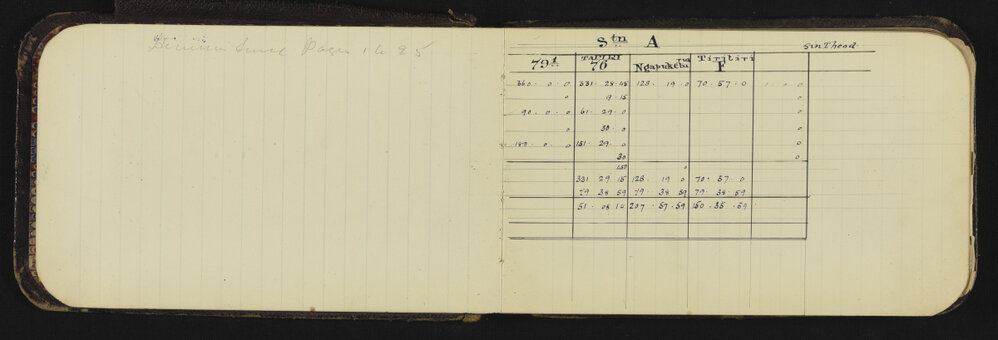 Pages 1 to 25
Stn A
5in Theod
79¼ TAPIRI 76 Ngapukerua Tiritiri F
360 · 0 · 0 331 · 28 · 45 128 · 19 · 0 70 · 57 · 0 0 0
0 9 · 15 0
90 · 0 · 0 61 · 29 · 0 0
0 30 · 0 0
180 · 0 · 0 151 · 29 · 0 0
30 0
0
331 29 15 128 19 0 70 · 57 · 0
79 38 59 79 · 38 59 79 · 38 · 59
51 · 08 10 207 · 57 · 59 150 · 35 · 59